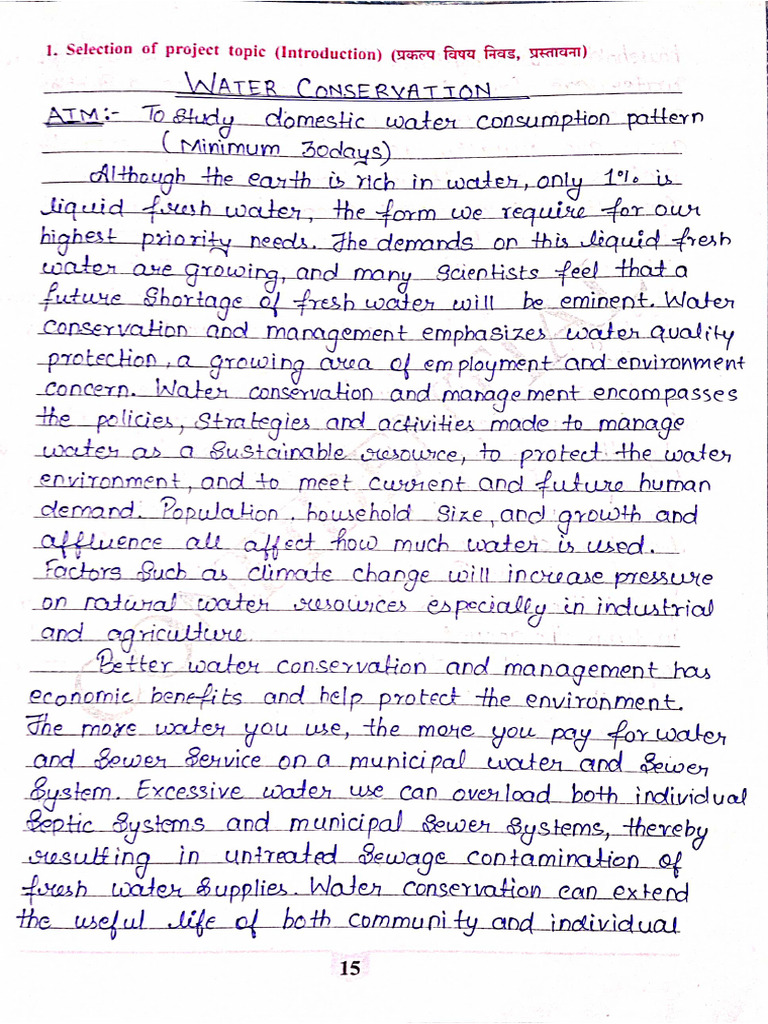 1. Selection of project topic (Introduction) (प्रकल्प विषय निवड, प्रस्तावना)
WATER CONSERVATION
AIM:- To study domestic water consumption pattern
(Minimum 30days)
Although the earth is rich in water, only 1% is
liquid fresh water, the form we require for our
highest priority needs. The demands on this liquid fresh
water are growing, and many scientists feel that a
future shortage of fresh water will be eminent. Water
conservation and management emphasizes water quality
protection, a growing area of employment and environment
concern. Water conservation and management encompasses
the policies, strategies and activities made to manage
water as a sustainable resource, to protect the water
environment, and to meet current and future human
demand. Population, household size, and growth and
affluence all affect how much water is used.
Factors such as climate change will increase pressure
on natural water resources especially in industrial
and agriculture.
Better water conservation and management has
economic benefits and help protect the environment.
The more water you use, the more you pay for water
and sewer service on a municipal water and sewer
system. Excessive water use can overload both individual
septic systems and municipal sewer systems, thereby
resulting in untreated sewage contamination of
fresh water supplies. Water conservation can extend
the useful life of both community and individual
15